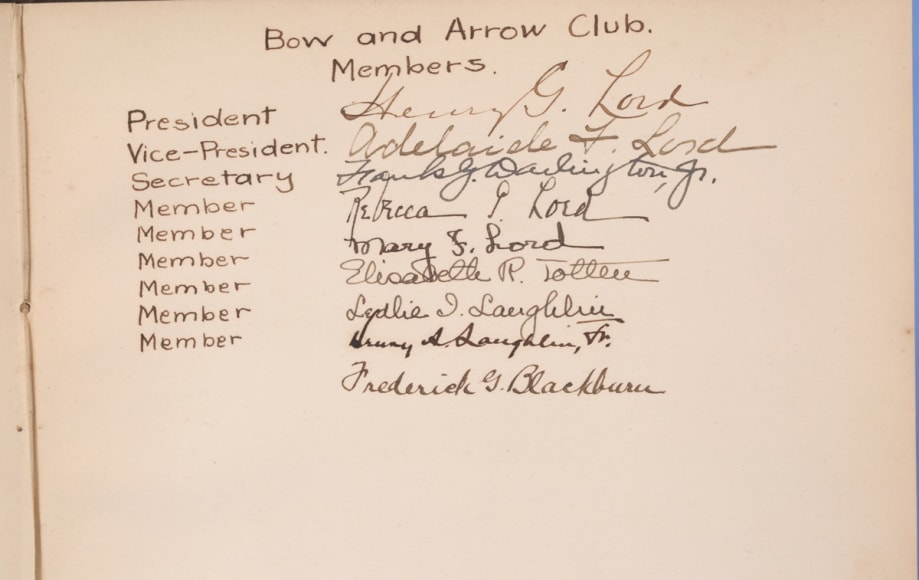 Bow and Arrow Club.
Members.
President Henry G. Lord
Vice-President. Adelaide F. Lord
Secretary Frank G. Darlington, Jr.
Member Rebecca P. Lord
Member Mary F. Lord
Member Elisabeth R. Totten
Member Ledlie I. Laughlin
Member Henry A. Laughlin, Jr.
Member Frederick G. Blackburn